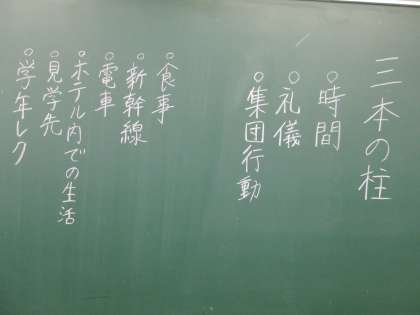 三本の柱
○時間
○礼儀
○集団行動
○食事
○新幹線
○電車
○ホテル内での生活
○見学先
○学年レク